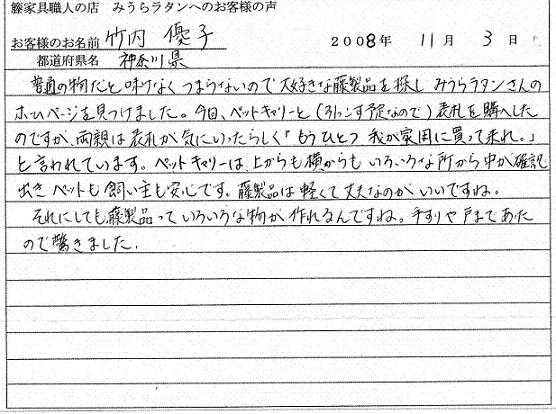 籐家具職人の店 みうらラタンへのお客様の声
お客様のお名前 竹内 優子 2008年 11月 3日
都道府県名 神奈川県
普通の物だと味けなくつまらないので大好きな藤製品を探し みうらラタンさんの
ホームページを見つけました。今回、ペットキャリーと(引っこす予定なので)表札を購入した
のですが、両親は表札が気にいったらしく「もうひとつ 我が家用に買って来れ。」
と言われています。ペットキャリーは、上からも横からも いろいろな所から中が確認
出き ペットも飼い主も安心です。藤製品は軽くて丈夫なのがいいですね。
それにしても藤製品っていろいろな物が作れるんですね。手すりや戸まであった
ので驚きました.